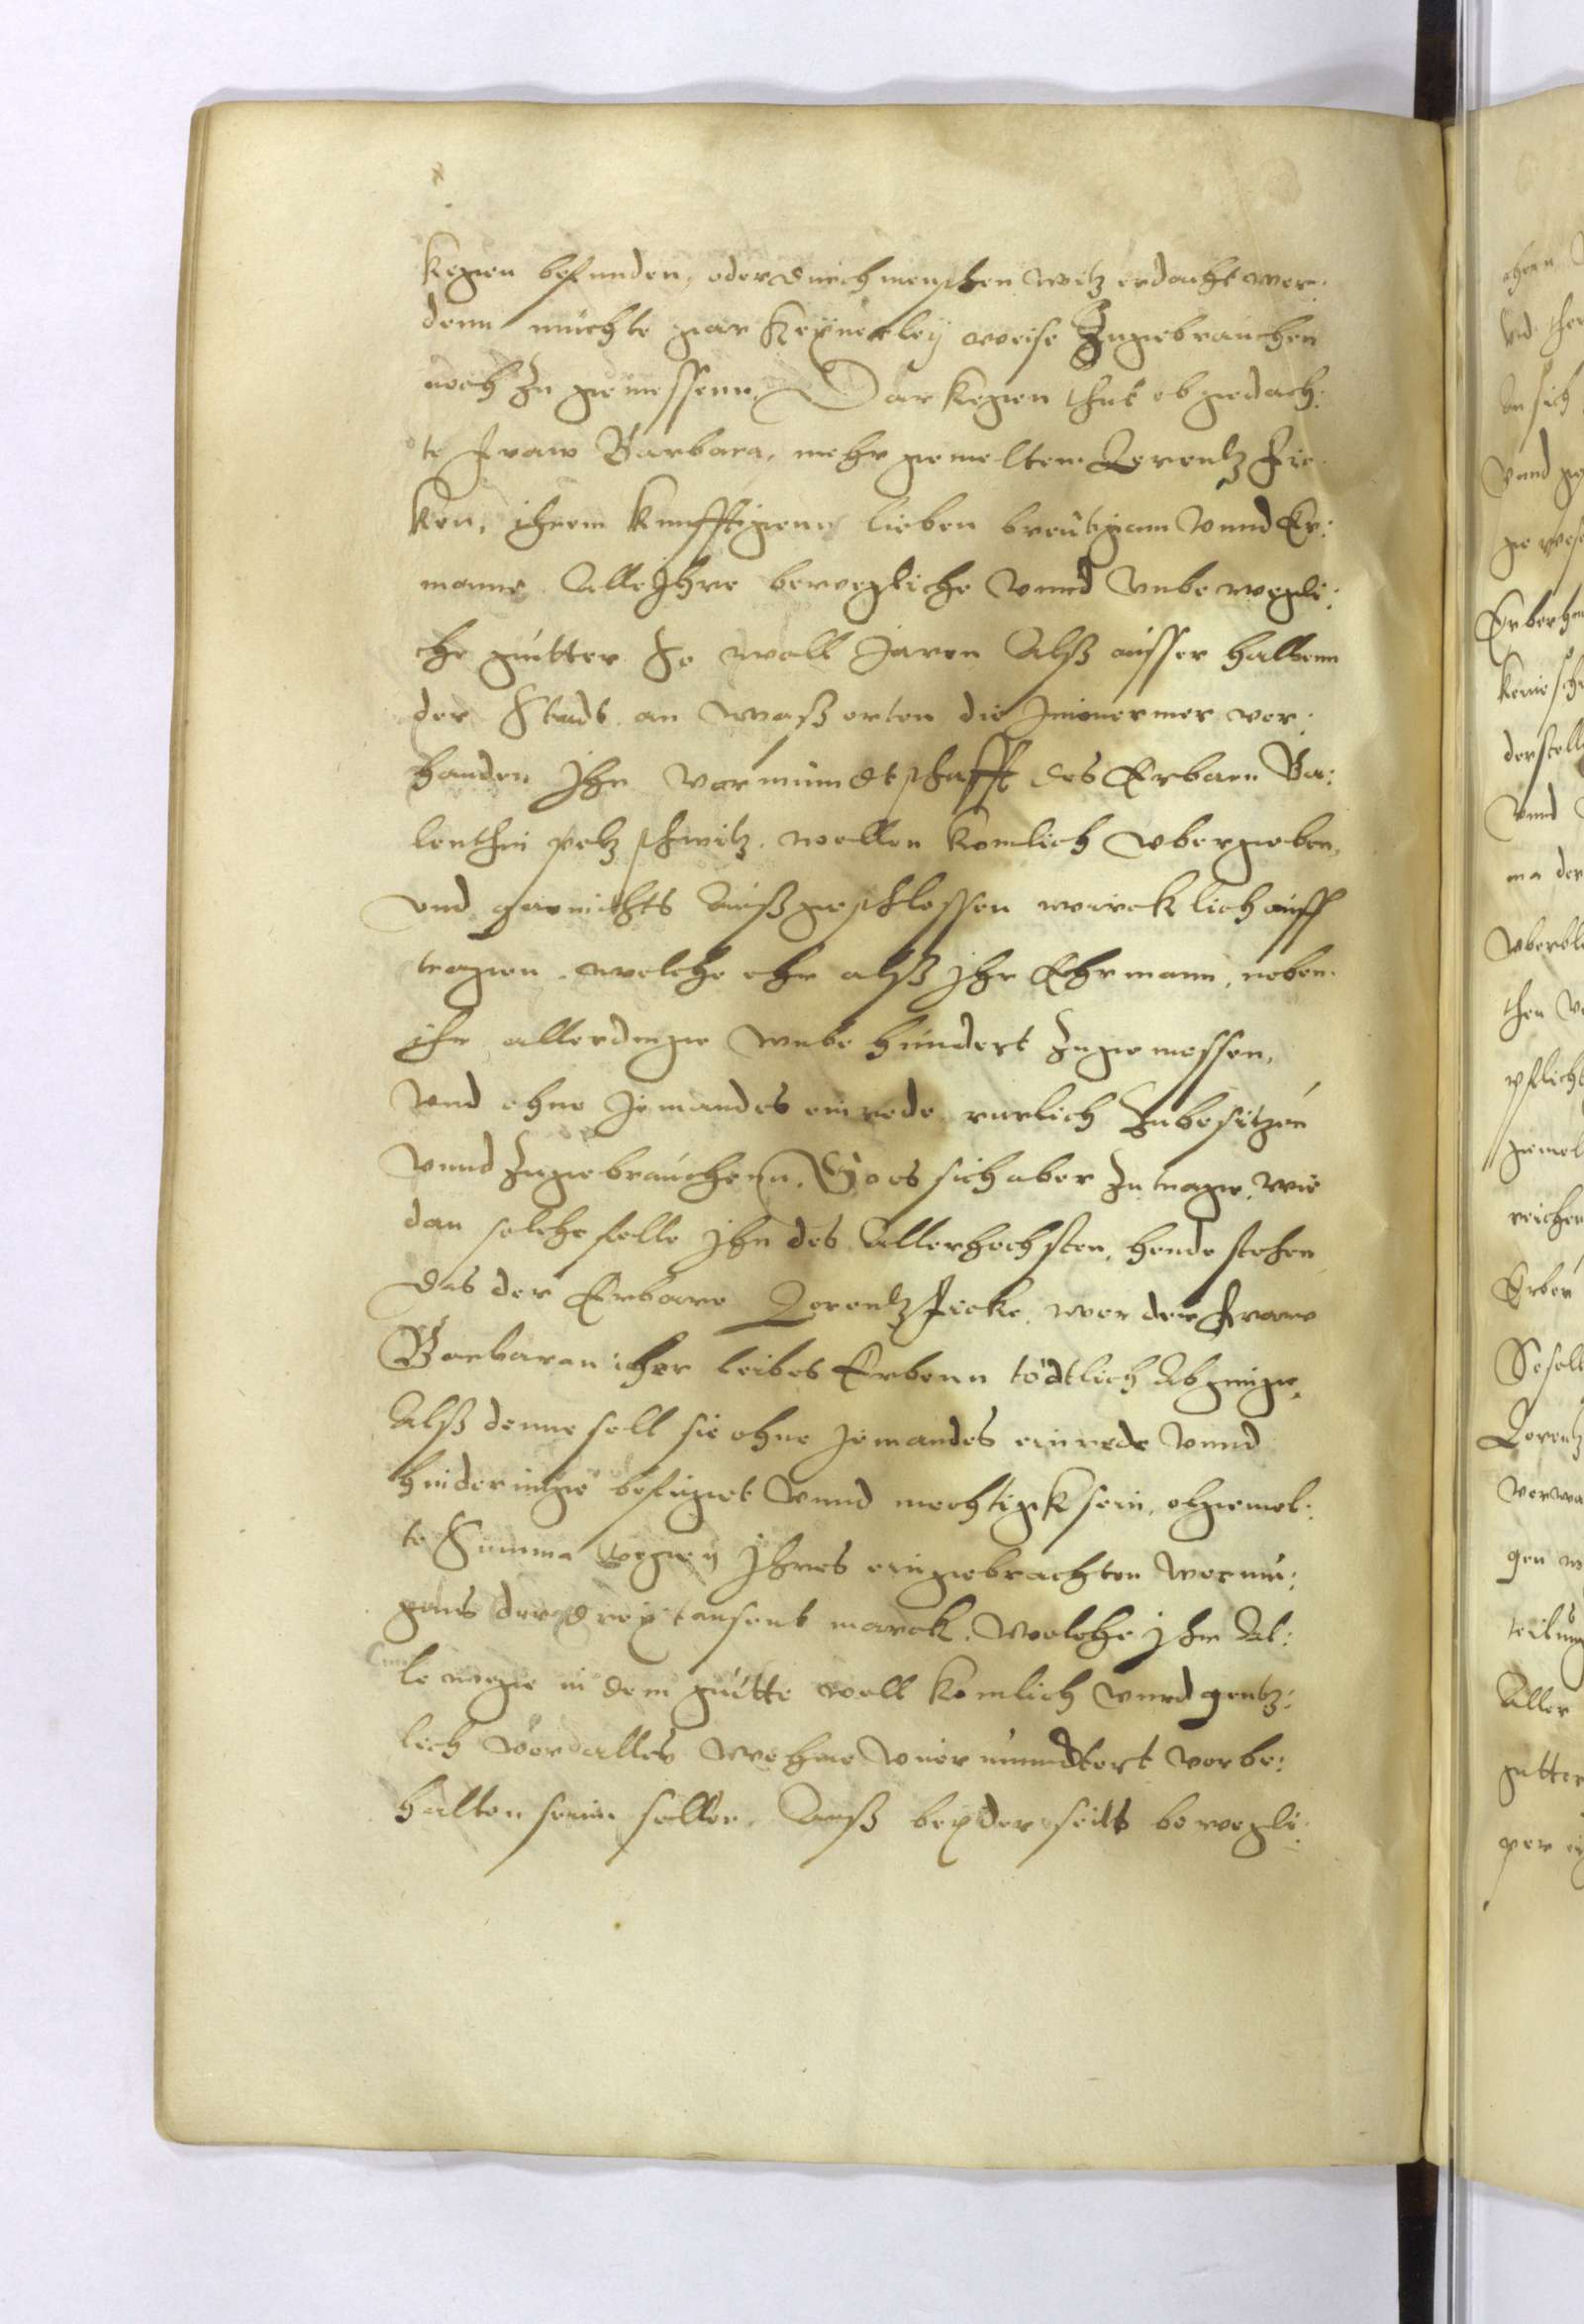 kegen befunden, oder durch menschen witz erdacht wer:
denn müchte gar keynerley weise Zugebrauchen
noch Zu geniessenn. Darkegen thut obgedach:
te Fraw Barbara, mehr gemelten Lorentz Fic
ken, ihrem kunfftigenn lieben breutigam vnnd Eh:
manne Alle Ihre bewegliche vnnd vnbewegli:
che gütter So woll Jnnen Alß ausser halbenn
der Stadt an waß orten die Jmmermer vor:
handen Jhn vormundtschafft des Erbarn Va:
lenthin wollen komlich vbergeben,
vnd garnichts Außgeschlossen wircklich auff
tragen, welche ehr alß Jhr Ehrmann, neben
ihr, allerdinge vnbehindert Zugenissen,
Vnd ohne Jemandes einrede, rurlich Zubesitzen
vnnd Zugebrauchenn. So es sich aber Zutrage, wie
dan solche felle Jhn des Allerhochsten, hende stehen
das der Erbare Lorentz Ficke, wor der Fraw
Barbaren ihrer leibes Erbenn tödtlich Abginge,
Alß denne soll sie ohne Jemandes einrede vnnd
hinderinge befuget vnnd mechtigk sein, obgemel:
te Summa wegen Jhres eingebrachten wormü:
gens der drey tausent marck, welche Jhr Al:
le wege in dem gütte woll komlich vnnd gentz:
lich vor alles vorbe:
halten seinn sollen, Auß beyderseits bewegli: